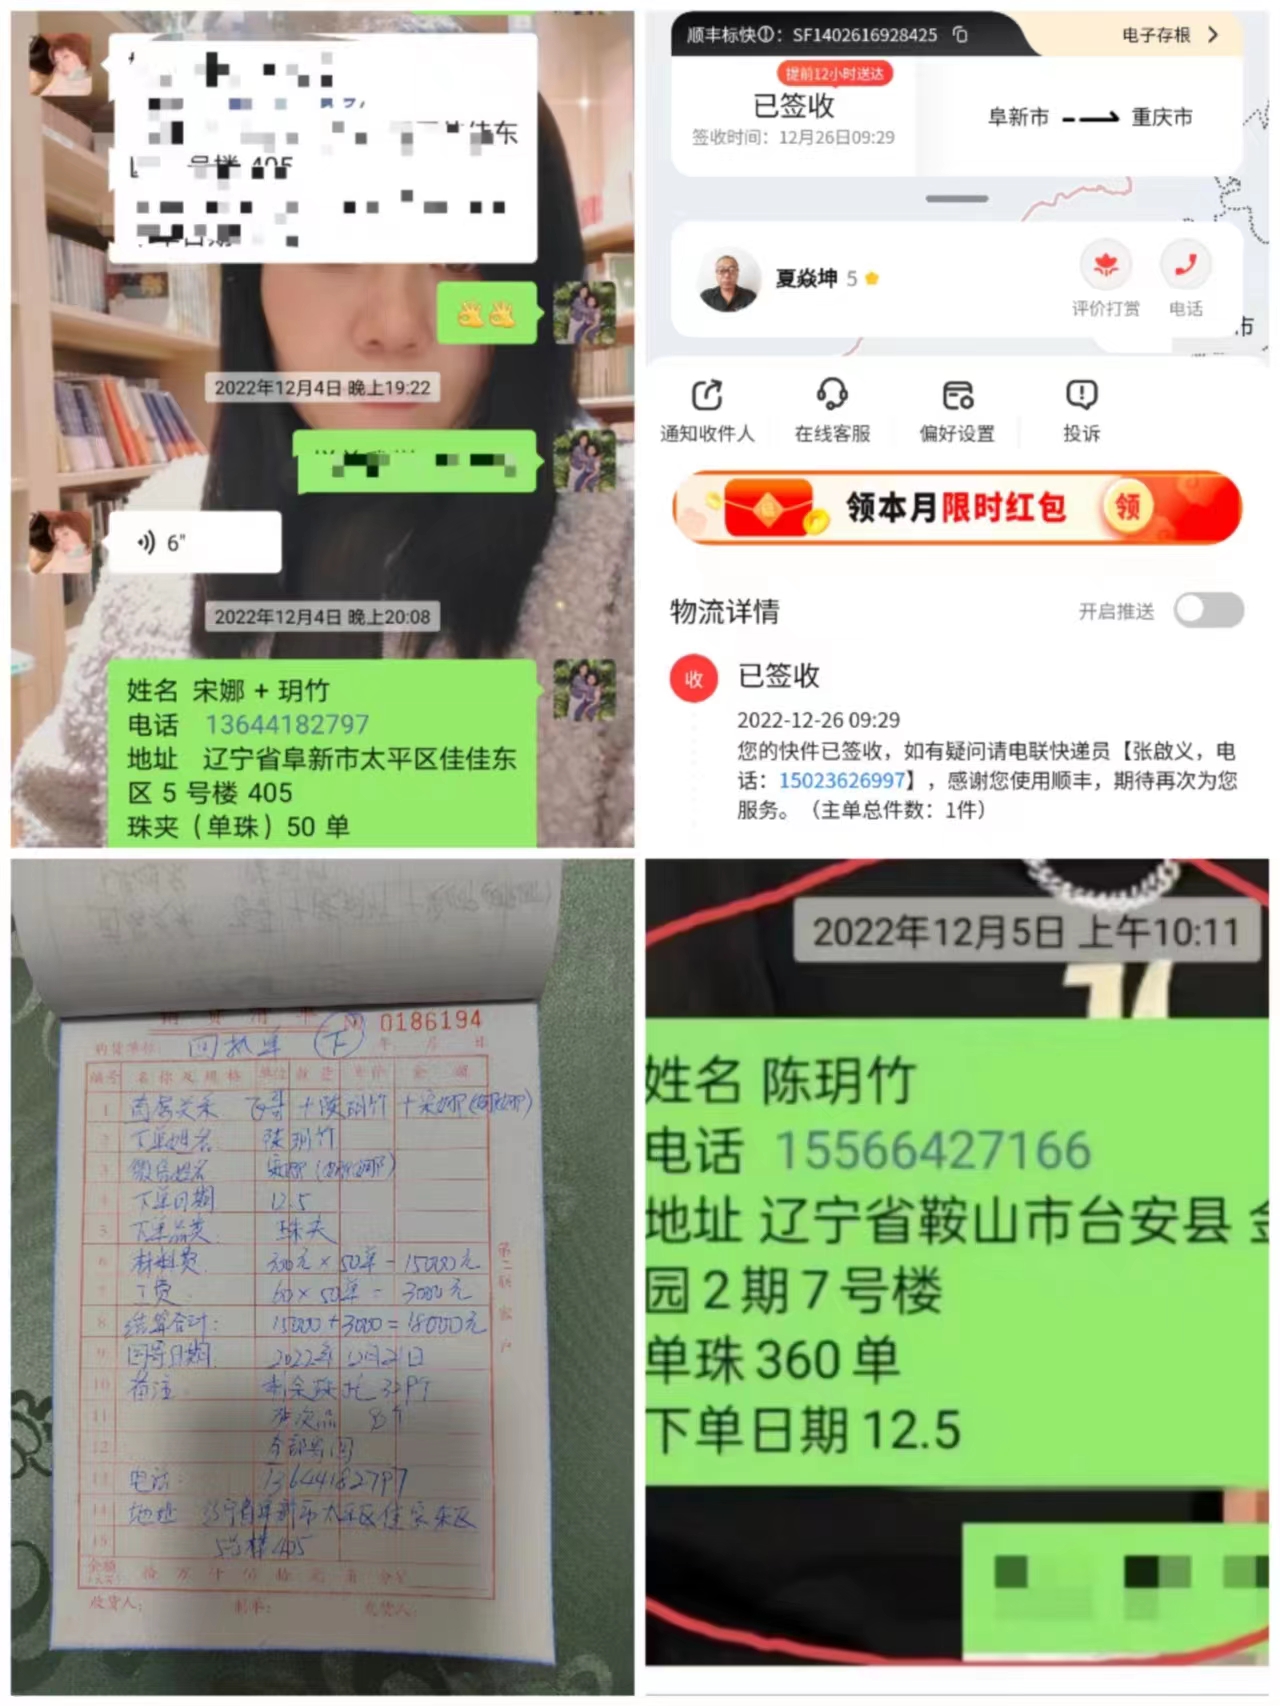 佳佳东
号楼 405
2022年12月4日 晚上19:22
6"
2022年12月4日 晚上20:08
姓名 宋娜 + 玥竹
电话 13644182797
地址 辽宁省阜新市太平区佳佳东
区 5 号楼 405
珠夹（单珠）50 单
顺丰标快 : SF1402616928425
电子存根
提前12小时送达
已签收
签收时间：12月26日09:29
阜新市
重庆市
夏焱坤 5
评价打赏
电话
市
通知收件人
在线客服
偏好设置
投诉
领本月限时红包
领
物流详情
开启推送
收
已签收
2022-12-26 09:29
您的快件已签收，如有疑问请电联快递员【张啟义，电
话：15023626997】，感谢您使用顺丰，期待再次为您
服务。（主单总件数：1件）
№ 0186194
购货单位： 回执单 下 年 月 日
编号 名称及规格 单位 数量 单价 金额
1 商务关系 飞哥+陈玥竹+宋娜(娜娜)
2 下单姓名 陈玥竹
3 微信姓名 宋娜(娜娜)
4 下单日期 12.5
5 下单品类 珠夹
6 材料费 300元×50单=15000元
7 工费 60×50单=3000元
8 结算合计: 15000+3000=18000元
9 回寄日期 2022年12月21日
10 备注
11 次品
12 全部寄回
13 电话: 13644182797
14 地址 辽宁省阜新市太平区佳佳东区
15 5号楼405
第二联 客户
收货人：
2022年12月5日 上午10:11
姓名 陈玥竹
电话 15566427166
地址 辽宁省鞍山市台安县 金
园2期7号楼
单珠360单
下单日期12.5